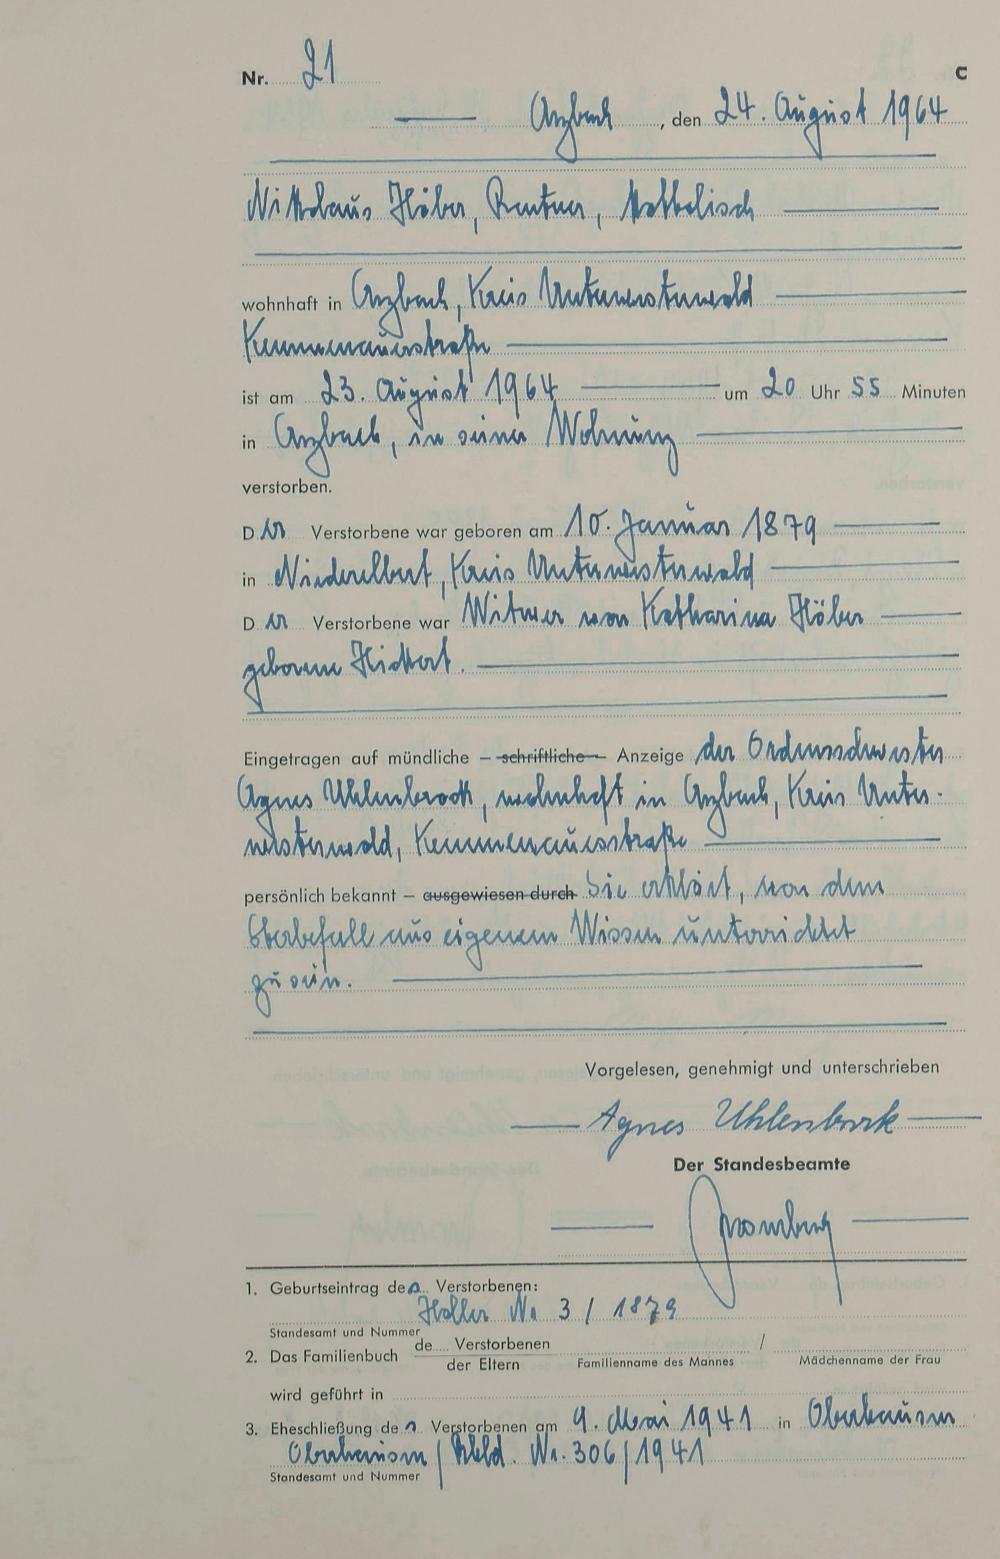 Nr. 21 C
Arzbach, den 24. August 1964
Nikolaus Höber, Rentner, katholisch
wohnhaft in Arzbach, Kreis Unterwesterwald
Kemmenauerstraße
ist am 23. August 1964 um 20 Uhr 55 Minuten
in Arzbach, in seiner Wohnung
verstorben.
Der Verstorbene war geboren am 10. Januar 1879
in Niederelbert, Kreis Unterwesterwald
Der Verstorbene war Witwer von Katharina Höber
geborene
Eingetragen auf mündliche – schriftliche – Anzeige der Ordensschwester
Agnes Uhlenbrock, wohnhaft in Arzbach, Kreis Unter-
westerwald, Kemmenauerstraße
persönlich bekannt – ausgewiesen durch Sie erklärt, von dem
Sterbefall aus eigenem Wissen unterrichtet
zu sein.
Vorgelesen, genehmigt und unterschrieben
Agnes Uhlenbrock
Der Standesbeamte
1. Geburtseintrag des Verstorbenen:
Holler Nr. 3 / 1879
Standesamt und Nummer
de Verstorbenen /
2. Das Familienbuch der Eltern Familienname des Mannes Mädchenname der Frau
wird geführt in
3. Eheschließung des Verstorbenen am 9. Mai 1941 in Oberhausen
Oberhausen / Rhld. Nr. 306 / 1941
Standesamt und Nummer